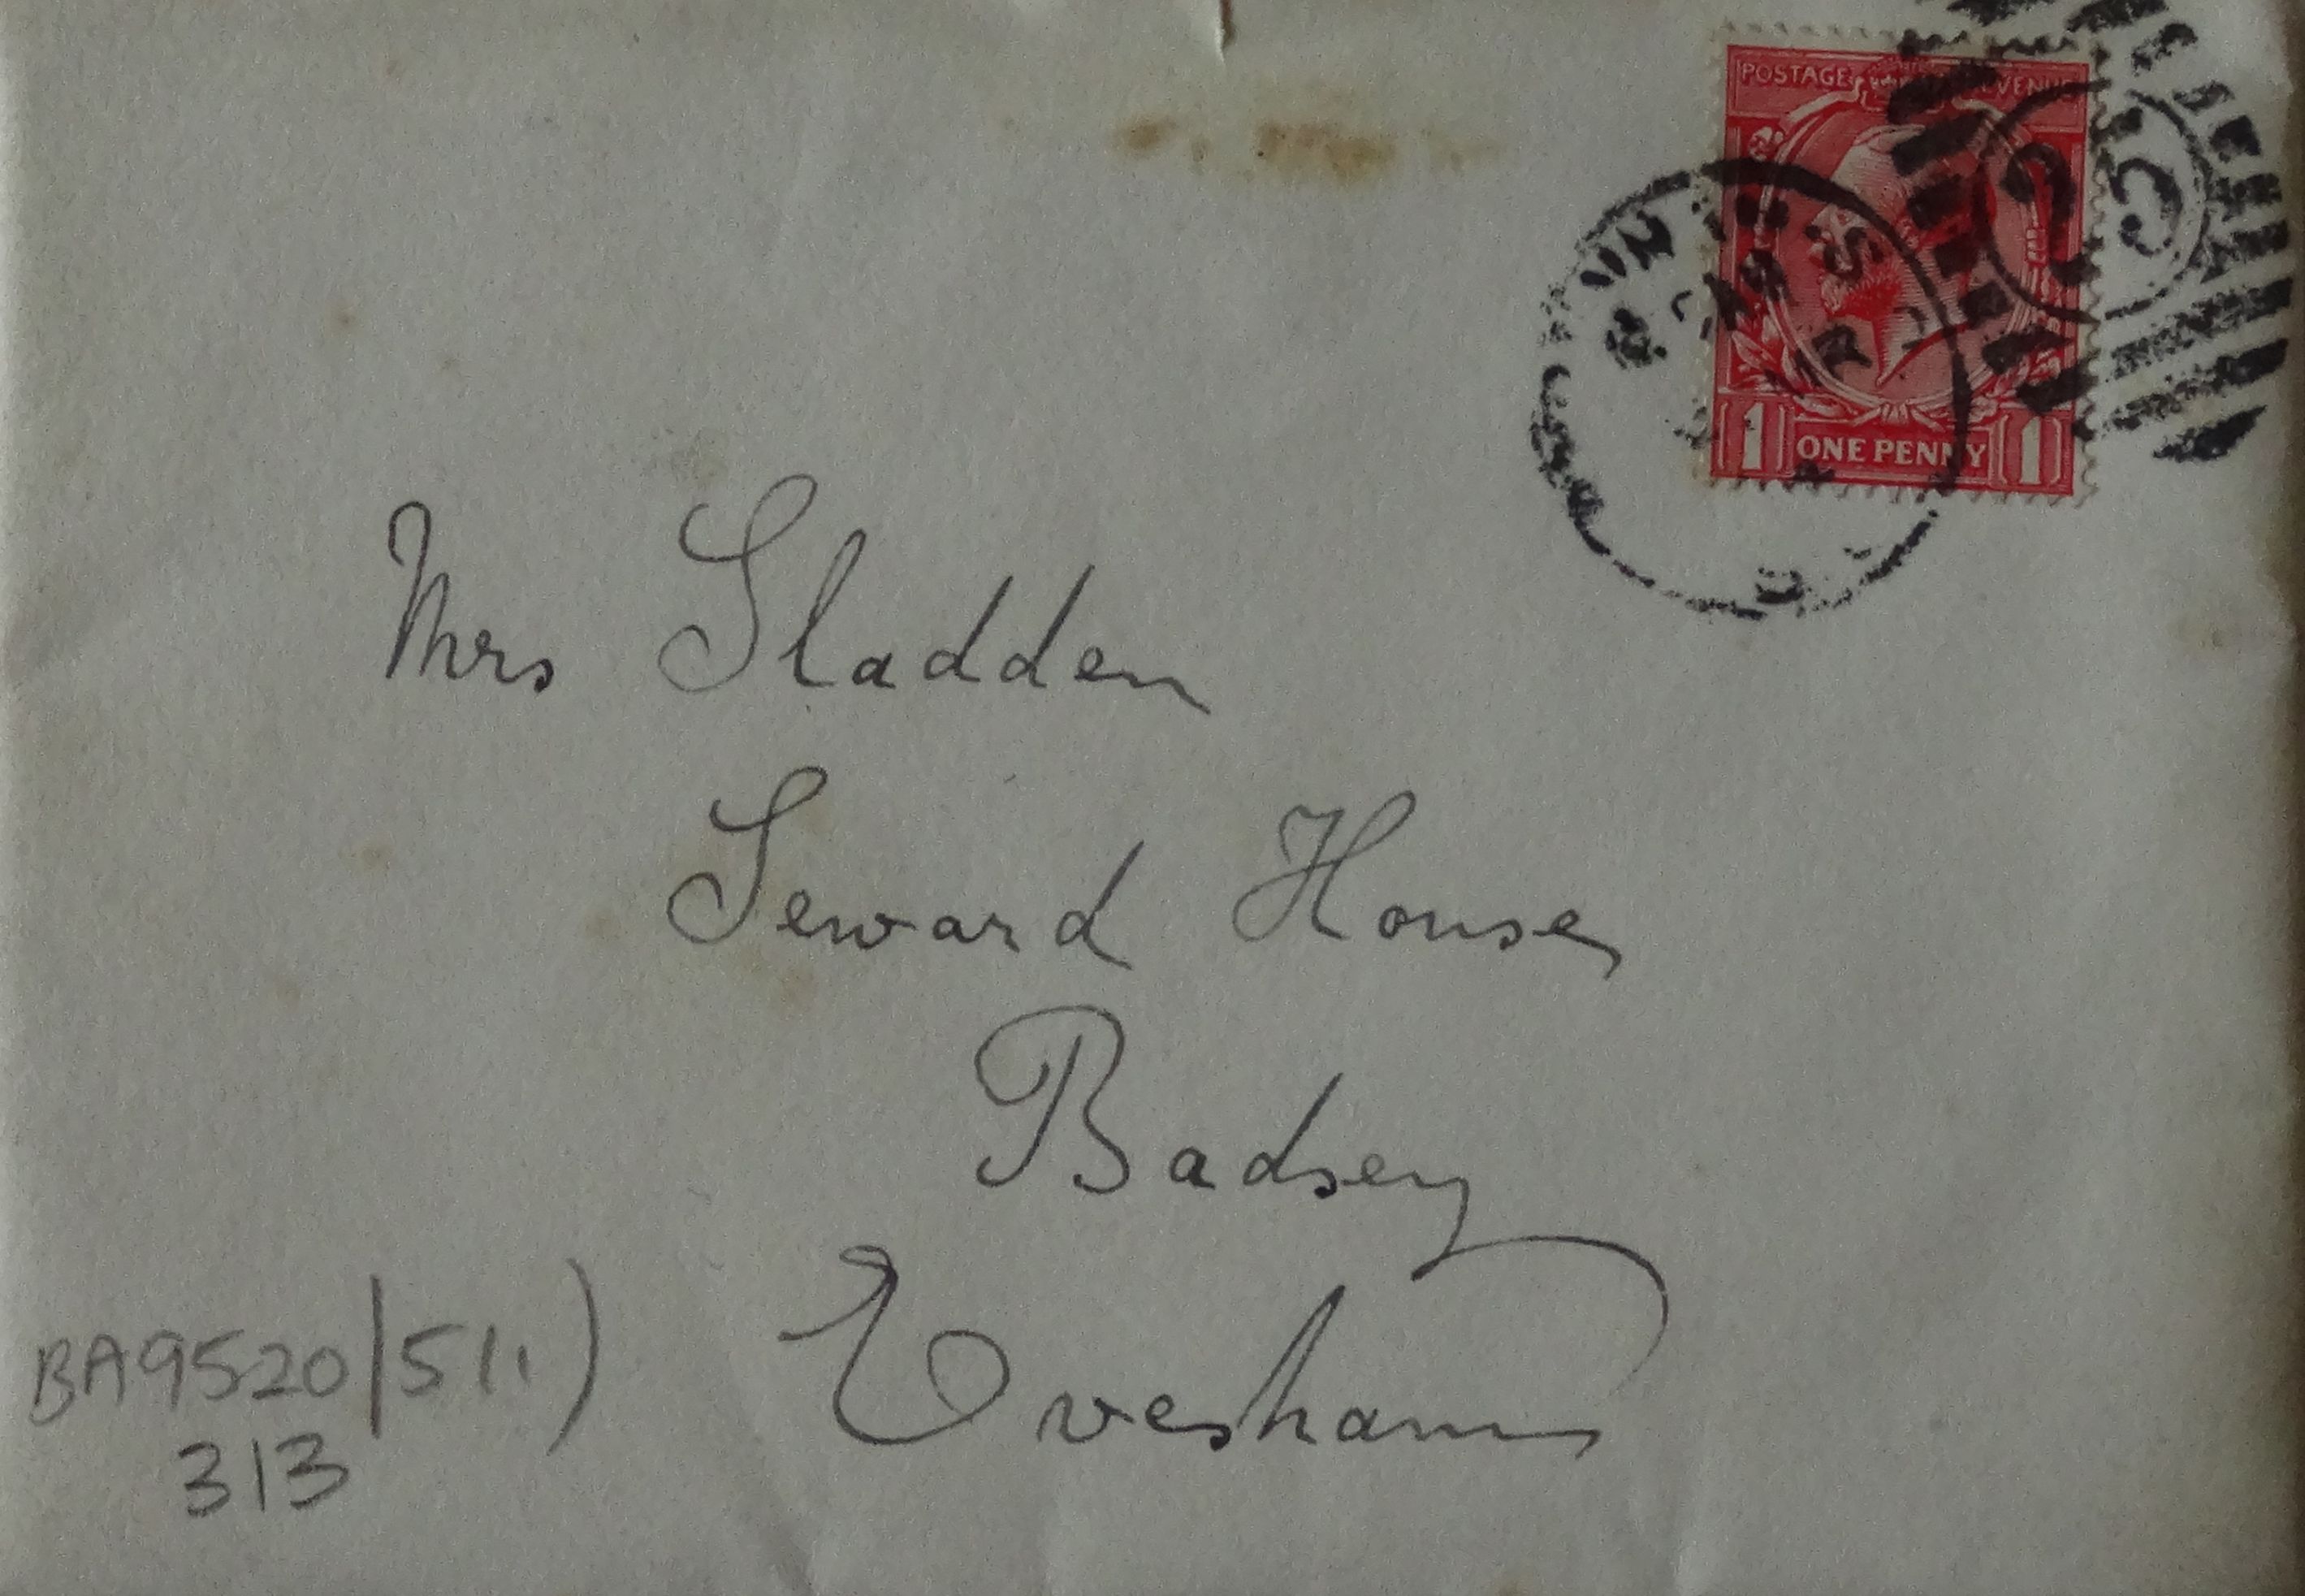 POSTAGE REVENUE
23
1 ONE PENNY 1
Mrs Sladden
Seward House
Badsey
Evesham
BA9520/5(i)
313